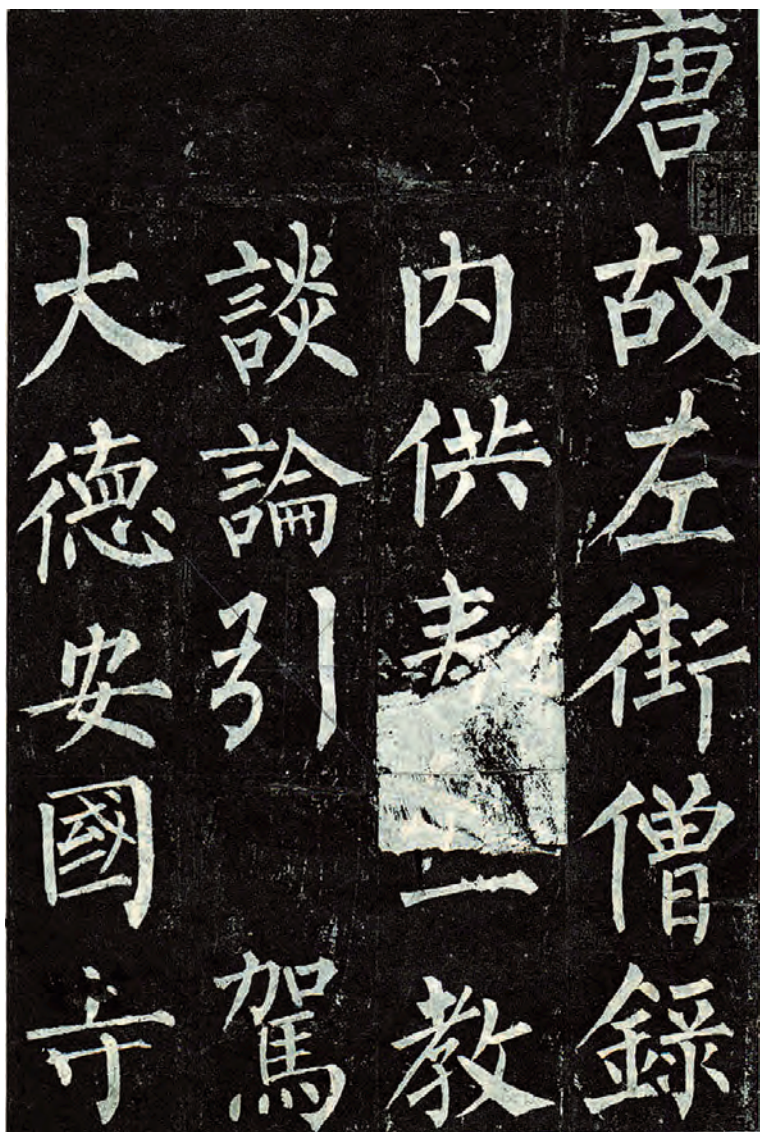 唐故左街僧錄
内供奉教
談論引駕
大徳安國寺